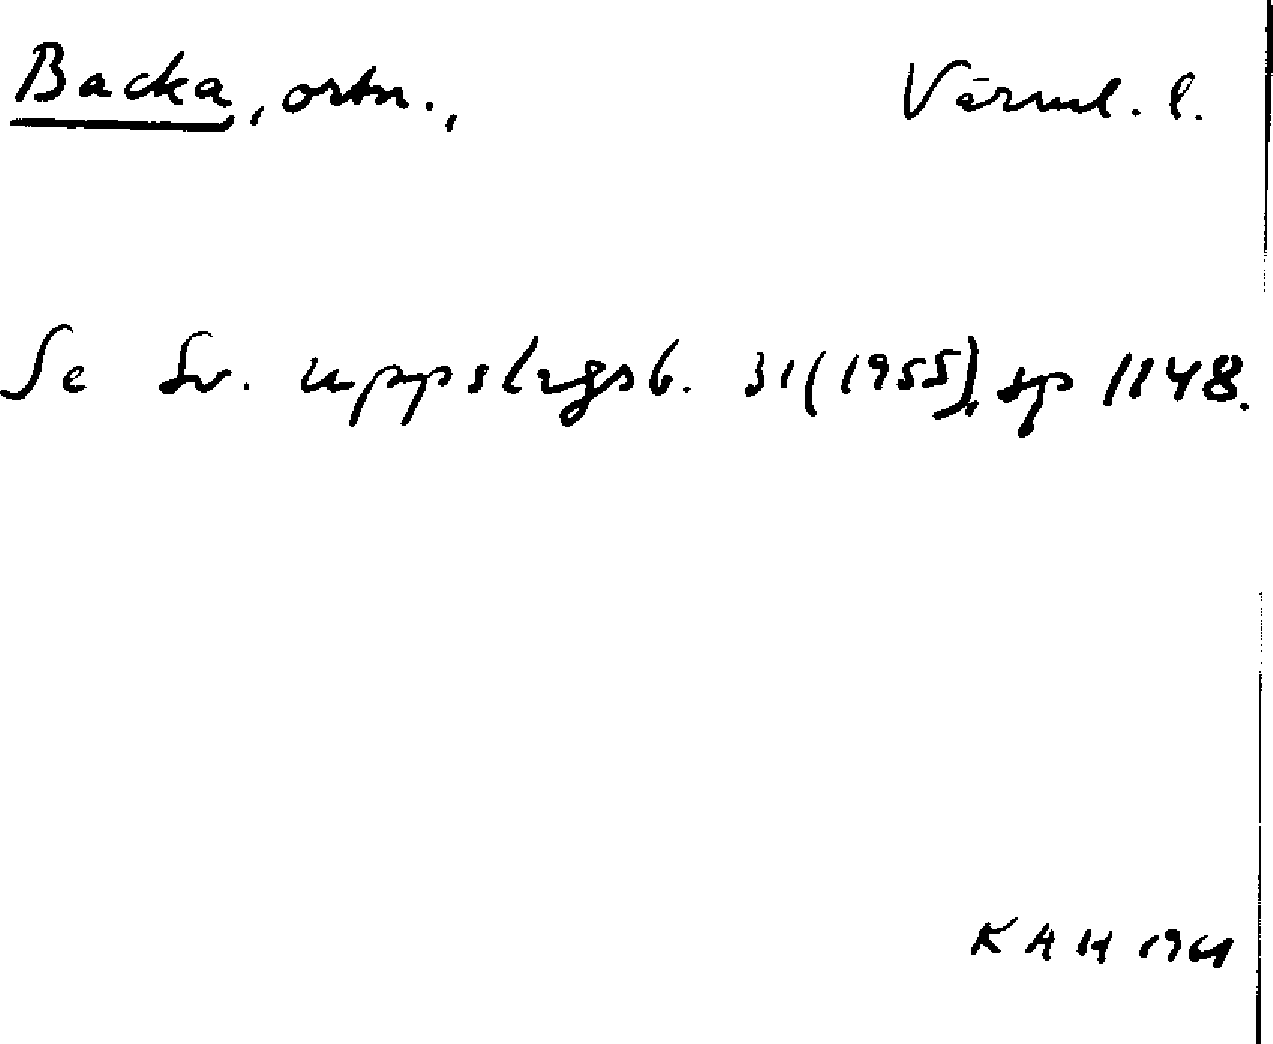 Backa, ortn., Värml. l.
Se Sv. uppslagsb. 31 (1955), sp 1148.
KAH 1961